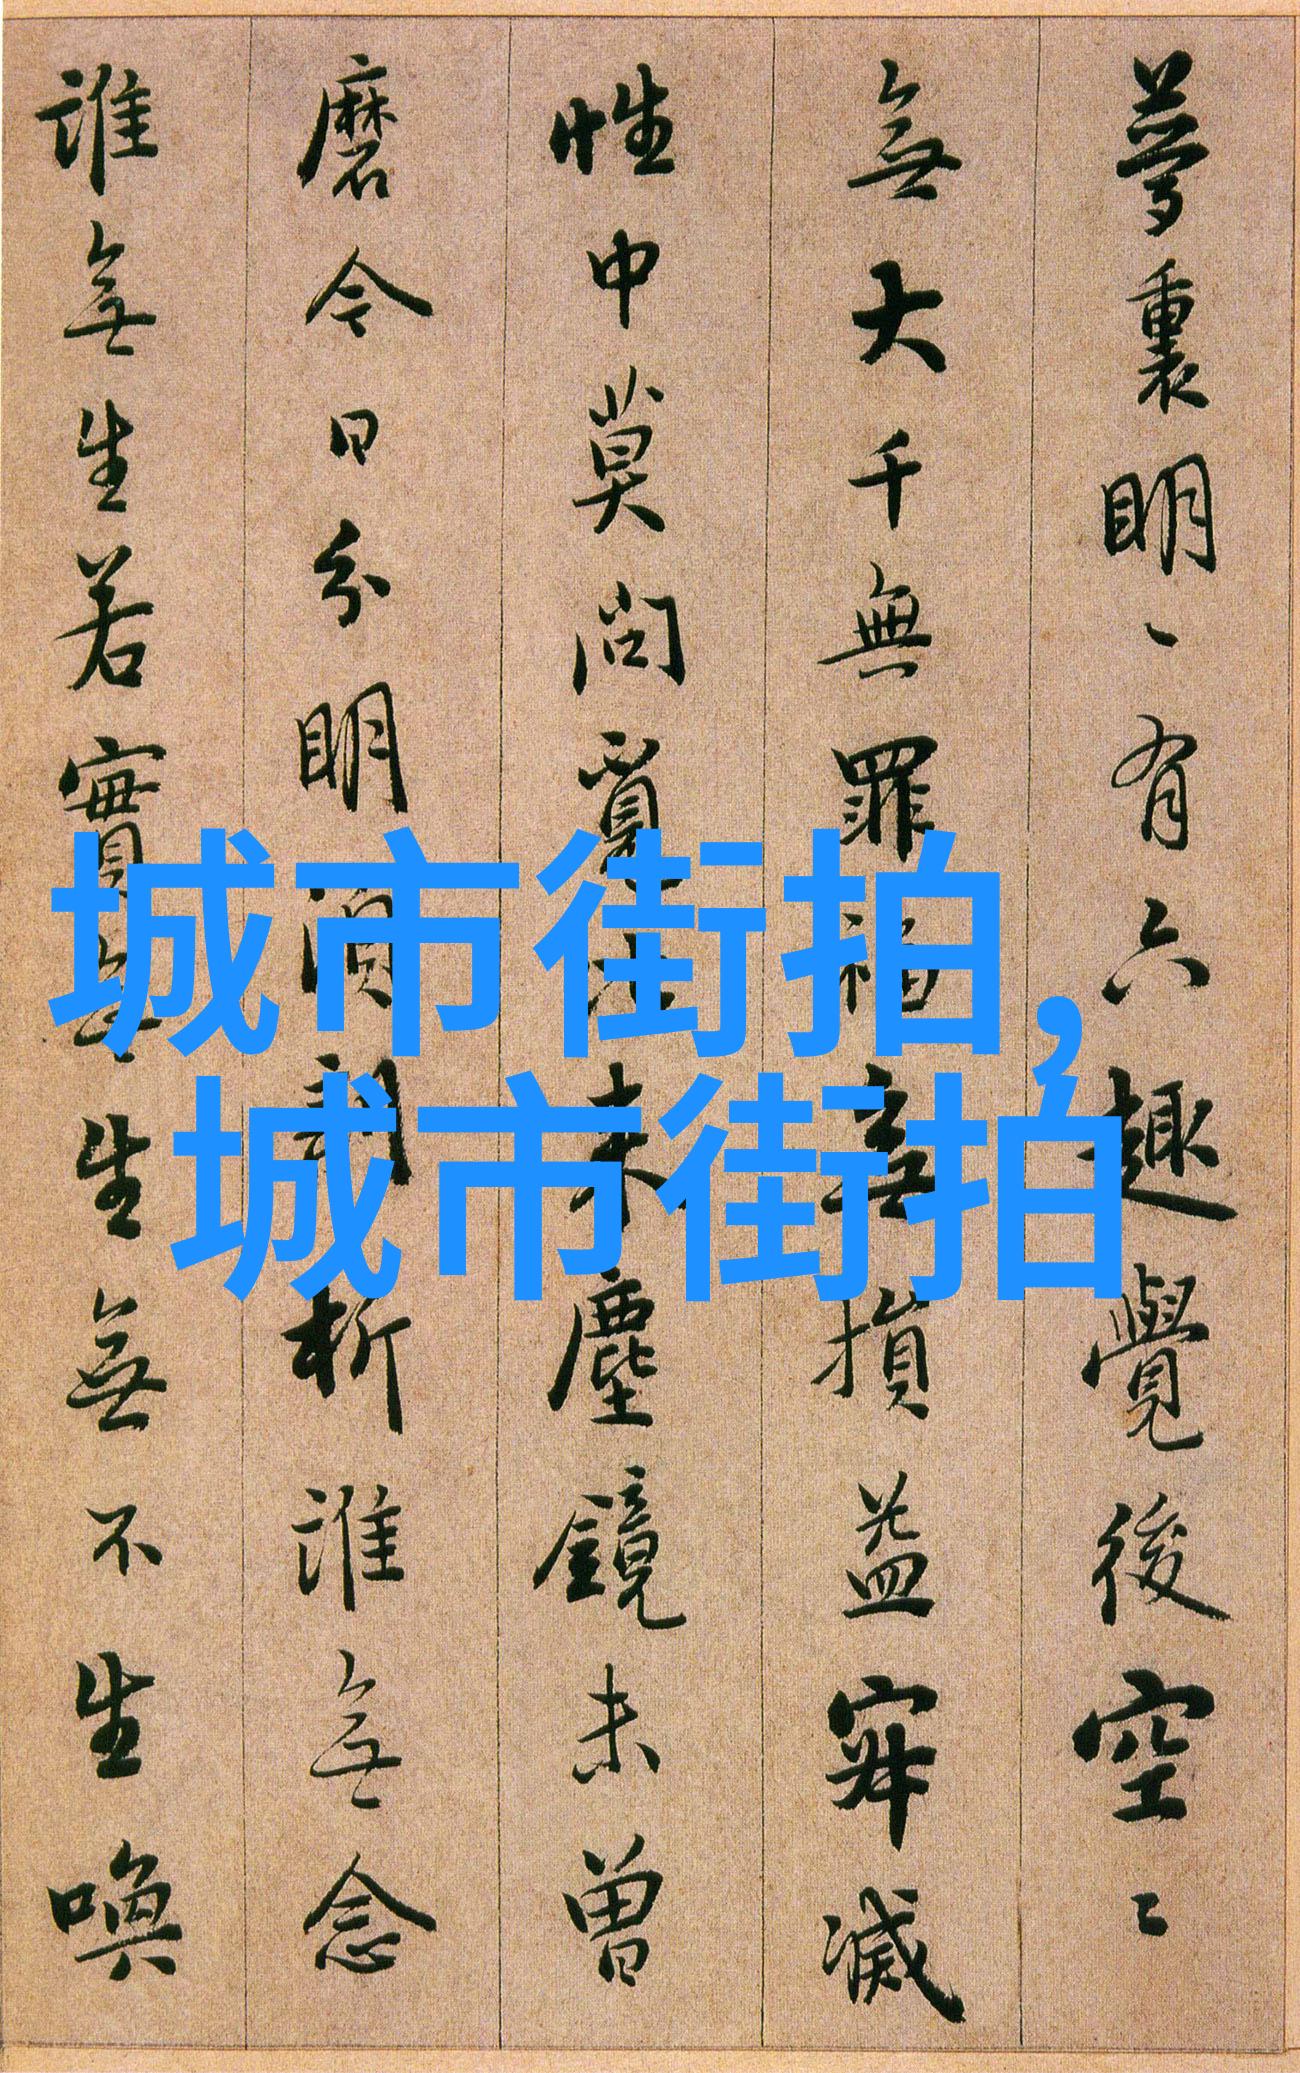 夢裏明〻有六趣覺後空〻
無大千無罪福無損益寂滅
性中莫問覓比來塵鏡未曾
磨今日分明須剖析誰無念
誰無生若實無生無不生喚
城市街拍,
城市街拍